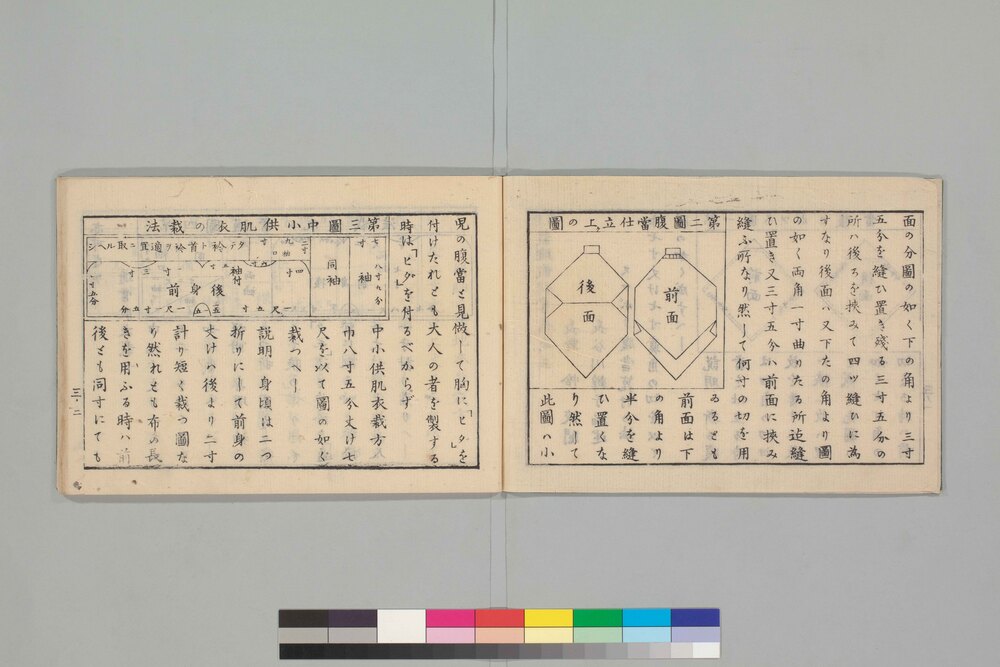 面の分圖の如く下の角より三寸
五分を縫ひ置き殘る三寸五分の
所ハ後ろを挾みて四ツ縫ひに為
すなり後面ハ又下たの角より圖
の如く両角一寸曲りたる所迠縫
ひ置き又三寸五分ハ前面に挾み
縫ふ所なり然して何寸の切を用
第二圖腹當仕立上の圖
前面
後面
ゐるとも
前面は下
の角より
半分を縫
ひ置くな
り然して
此圖ハ小
児の腹當と見做して胸に「ヒダ」を
付けたれとも大人の者を製する
時は「ヒダ」を付るべからず
第三圖中小供肌衣の裁法
袖
八寸九分
同袖
袖付
前身後
中小供肌衣裁方ハ
巾八寸五分丈け七
尺を以て圖の如く
裁つべし
説明 身頃は二つ
折りにして前身の
丈けハ後より二寸
計り短く裁つ圖な
り然れとも布の長
きを用ふる時ハ前
後とも同寸にても
三ノ二